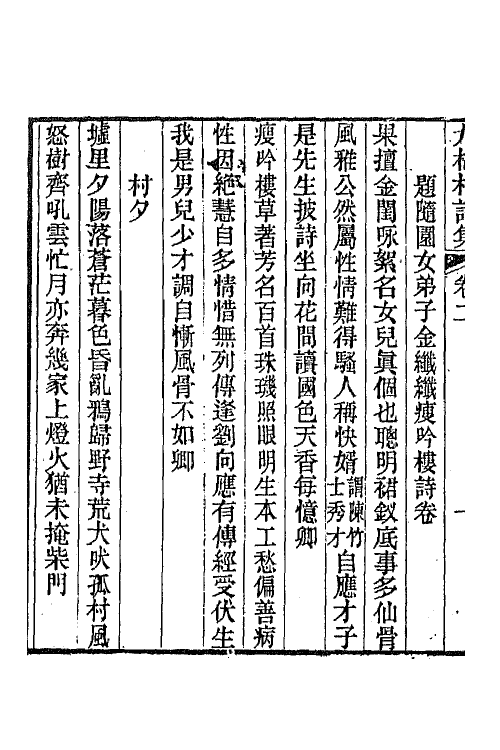 題隨園女弟子金纖纖瘦吟樓詩卷
果擅金閨咏絮名女兒眞個也聰明裙釵底事多仙骨
風雅公然屬性情難得騷人稱快婿謂陳竹士秀才自應才子
是先生披詩坐向花間讀國色天香每憶卿
瘦吟樓草著芳名百首珠璣照眼明生本工愁偏善病
性因絕慧自多情惜無列傳逢劉向應有傳經受伏生
我是男兒少才調自慚風骨不如卿
村夕
墟里夕陽落蒼茫暮色昏亂鴉歸野寺荒犬吠孤村風
怒樹齊吼雲忙月亦奔幾家上燈火猶未掩柴門